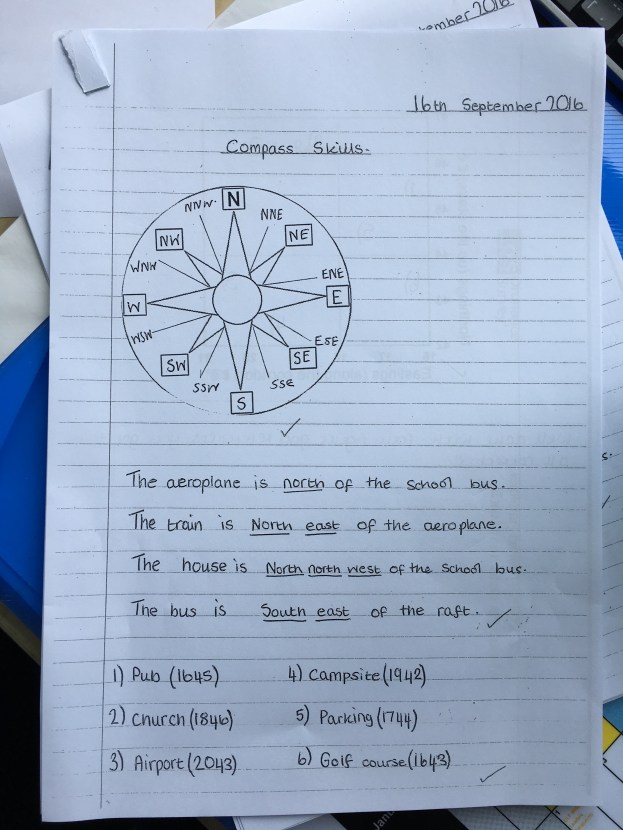 ember 2016
16th September 2016
Compass Skills.
N
NNW.
NNE
NW
NE
WNW
ENE
W
E
WSW
ESE
SW
SE
SSW
SSE
S
The aeroplane is north of the school bus.
The train is North east of the aeroplane.
The house is North north west of the school bus.
The bus is South east of the raft.
1) Pub (1645)
4) Campsite (1942)
2) Church (1846)
5) Parking (1744)
3) Airport (2043)
6) Golf course (1643)